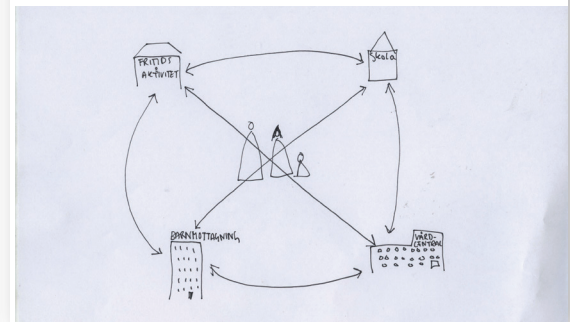 FRITIDS
AKTIVITET
Skola
BARNMOTTAGNING
VÅRD-
CENTRAL